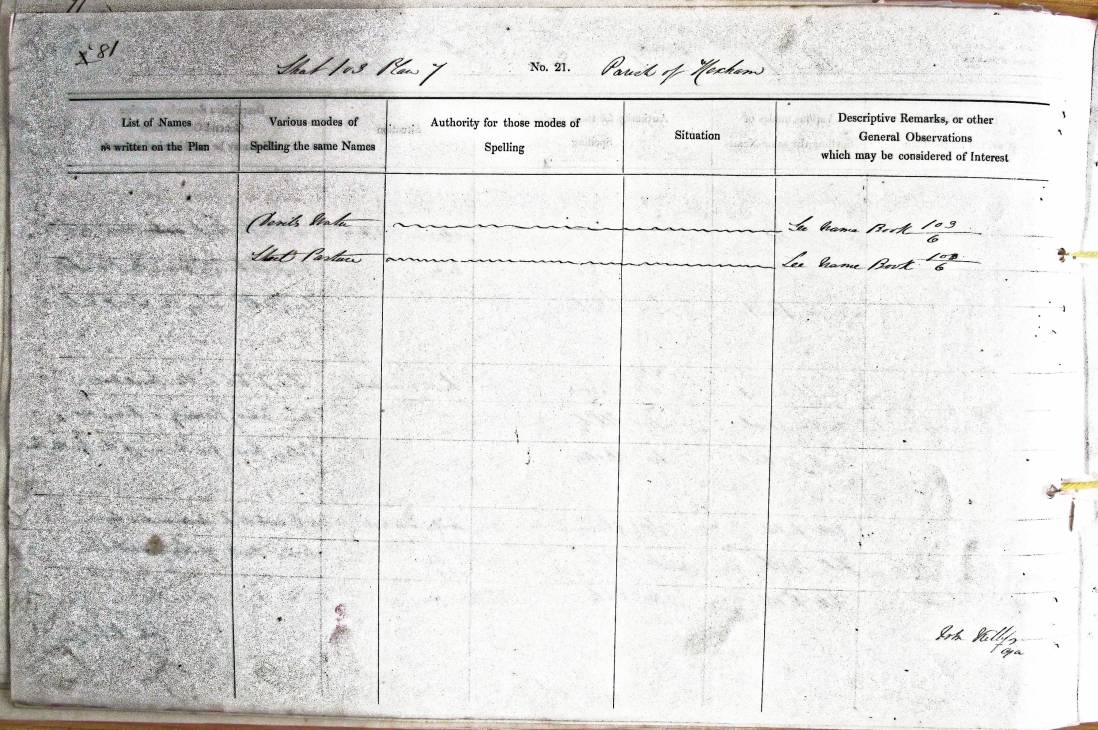 81
Sheet 103 Plan 7 No. 21. Parish of Hexham
List of Names
as written on the Plan
Various modes of
Spelling the same Names
Authority for those modes of
Spelling
Situation
Descriptive Remarks, or other
General Observations
which may be considered of Interest
Devils Water See Name Book 103/6
Pasture See Name Book 103/6
John